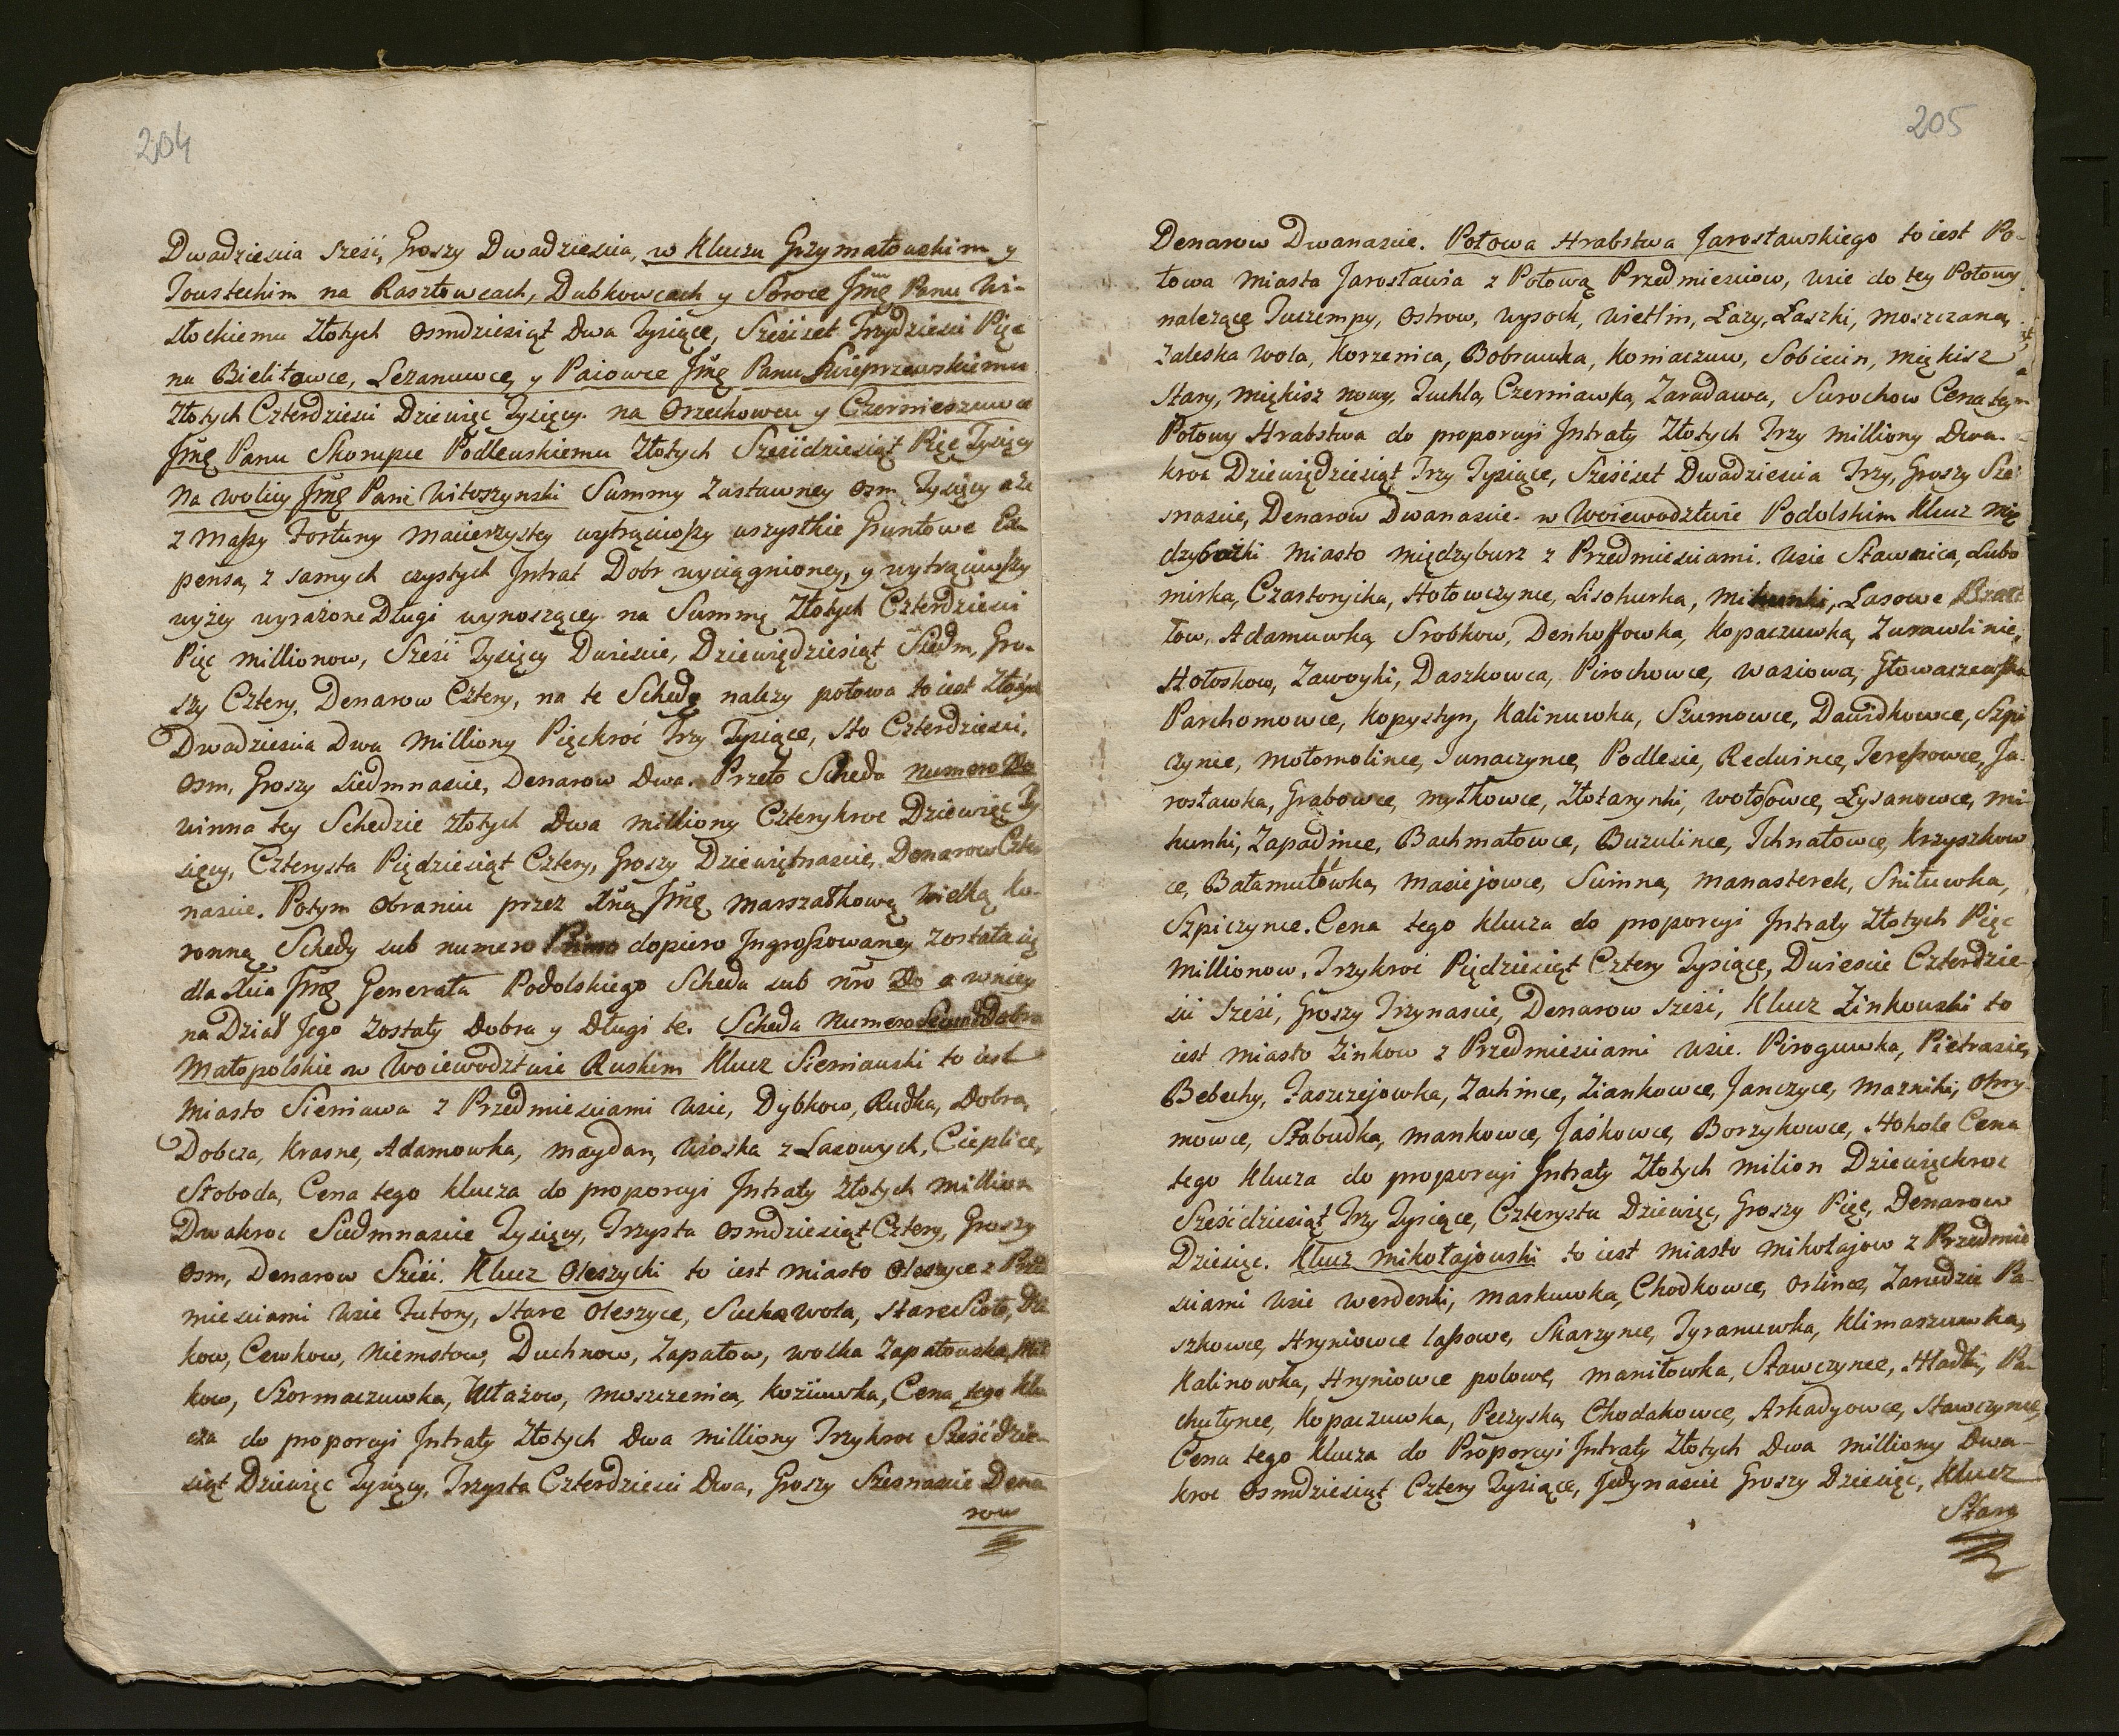 204
Dwadziescia sześć, Groszy Dwadziescia, w Kluczu Grzymałowskim y
Toustechim na Rasztowcach, Dubkowcach y Soroce Jmę Panu Wi-
słockiemu Złotych osmdziesiąt Dwa Tysiące, Sześćset Trzydzieści Pięc
na Bielitowce, Lezanuwce, y Paiowce Jmę Panu Swieprzewskiemu
Złotych Czterdziesci Dziewięc Tysięcy. na Orzechowcu y Czernieszuwce
Jmę Panu Skorupce Podlewskiemu Złotych Sześcdziesiąt Pięc Tysięcy
Na wolicy Jmę Pani Witoszynski Summy Zastawney osm Tysięcy a że
z Massy Fortuny macierzystey wytrąciwszy wszystkie Gruntowe Ex-
pensa, z samych czystych Jntrat Dobr wyciągnioney, y wytrąciwszy
wyżey wyrażone Długi wynoszącey na Summę Złotych Czterdziesci
Pięc millionow, Sześć Tysięcy Dwiescie, Dziewiędziesiąt Siedm, Gro-
szy Cztery, Denarow Cztery, na te Schedę nalezy połowa to iest Złotych
Dwadziescia Dwa milliony Pięckroć Trzy Tysiące, sto Czterdziesci,
osm, Groszy siedmnascie, Denarow Dwa. Przeto Scheda Numero 2do
winna tey Schedzie złotych Dwa milliony Czterykroc Dziewięc Ty
sięcy, Czterysta Pięcdziesiąt Cztery, Groszy Dziewiętnascie, Denarow Czter
nascie. Potym obraniu przez Xną Jmę Marszałkową Wielką Ko-
ronną Schedy sub numero Primo dopiero Jngrossowaney została się
dla Xcia Jmę Generała Podolskiego Scheda sub nro 2do a w niey
na Dział Jego zostały Dobra y Długi te. Scheda Numero Secundo Dobra
Małopolskie w Woiewodztwie Ruskim Klucz Sieniawski to iest
Miasto Sieniawa z Przedmiesciami wsie, Dybkow, Rudka, Dobra,
Dobcza, Krasne, Adamowka, maydan, wioska z Lasowych, Cieplice,
Słoboda, Cena tego klucza do proporcyi Jntraty Złotych million
Dwakroc Siedmnascie Tysięcy, Trzysta osmdziesiąt Cztery, Groszy
osm, Denarow Sześć. Klucz Oleszycki to iest miasto Oleszyce z Prze
miesciami wsie Futory, stare Oleszyce, Sucha wola, stare Sioło,
kow, Cewkow, Niemstow, Duchnow, Zapałow, wolka Zapałowska,
kow, Szormaczuwka, Ułazow, moszczenica, koziiuwka, Cena tego klu
cza do proporcyi Jntraty Złotych Dwa milliony Trzykroc Sześćdzie-
siąt Dziewięc Tysięcy, Trzysta Czterdziesci Dwa, Groszy Szesnascie Dena
row
205
Denarow Dwanascie. Połowa Hrabstwa Jarosławskiego to iest Po-
łowa miasta Jarosławia z Połową Przedmiesciow, wsie do tey Połowy
należące Tuczempy, Ostrow, wysock, wietlin, Łazy, Łaszki, moszczana,
Zaleska wola, Korzenica, Bobruwka, Koniaczuw, Sobiecin, miękisz
stary, miękisz nowy, Tuchla, Czerniawka, Zaradawa, Surochow Cena tey
Połowy Hrabstwa do proporcyi Jntraty Złotych Trzy milliony Dwa-
kroc Dziewięcdziesiąt Trzy Tysiące, Sześćset Dwadziescia Trzy, Groszy Sze
snascie, Denarow Dwanascie. w Woiewodztwie Podolskim Klucz Mię
dzyboski miasto międzyburz z Przedmiesciami. wsie Stawnica, Lubo
mirka, Czastonyika, Hołowczynce, Lisohurka, Lasowe Brat
łow, Adamuwka, Srobkow, Denhoffowka, Kopaczuwka, Zurawlinie,
Hołoskow, Zawoyki, Daszkowca, Pirochowce, waziowa, Głowaczewska
Parchomowce, Kopystyn, Kalinuwka, Szumowce, Dawidkowce, Szpi
czynce, mołomolince, Junaczynce, Podlesie, Redwince, Teressowce, Ja-
rosławka, Grabowce, mytkowce, Złotarynki, wołosowce, Łysanowce, mi-
kunki, Zapadince, Bachmatowce, Buzulince, Ichnatowce, Krzyszkow
ce, Bałamutówka, Masiejowce, Swinna, Manasterek, Sniluwka,
Szpiczynce. Cena tego klucza do proporcyi Jntraty Złotych Pięc
Millionow, Trzykroć Pięcdziesiąt Cztery Tysiące, Dwiescie Czterdzie-
sci sześć, Groszy Trzynascie, Denarow sześć, Klucz Zinkowski to
iest miasto Zinkow z Przedmiesciami wsie. Piroguwka, Pietrasie,
Bebechy, Jaszczejowka, Zachince, Ziankowce, Janczyce, Mazniki, Ohry-
mowce, Słabudka, mankowce, Jaśkowce, Borzykowce, Hohole Cena
tego klucza do proporcyi Jntraty Złotych milion Dziewięckroc
Sześćdziesiąt Trzy Tysiące, Czterysta Dziewięc, Groszy Pięc, Denarow
Dziesięc. Klucz Mikołajowski to iest miasto Mikołajow z Przedmie
sciami wsie werdenki, maskuwka, Chodkowce, orlince, Zarudzie Pa-
szkowce, Hryniowce lassowe, Skarzynce, Tyranuwka, Klimaszuwka,
Kalinowka, Hryniowce polowe, maniłowka, Stawczynce, Hładki, Pa-
chutynce, Kopaczuwka, Peczyska, Chodakowce, Arkadyowce, Stawczynce,
Cena tego klucza do Proporcyi Jntraty Złotych Dwa milliony Dwa-
kroc osmdziesiąt Cztery Tysiące, Jedynascie Groszy Dziesięc, Klucz
Staro